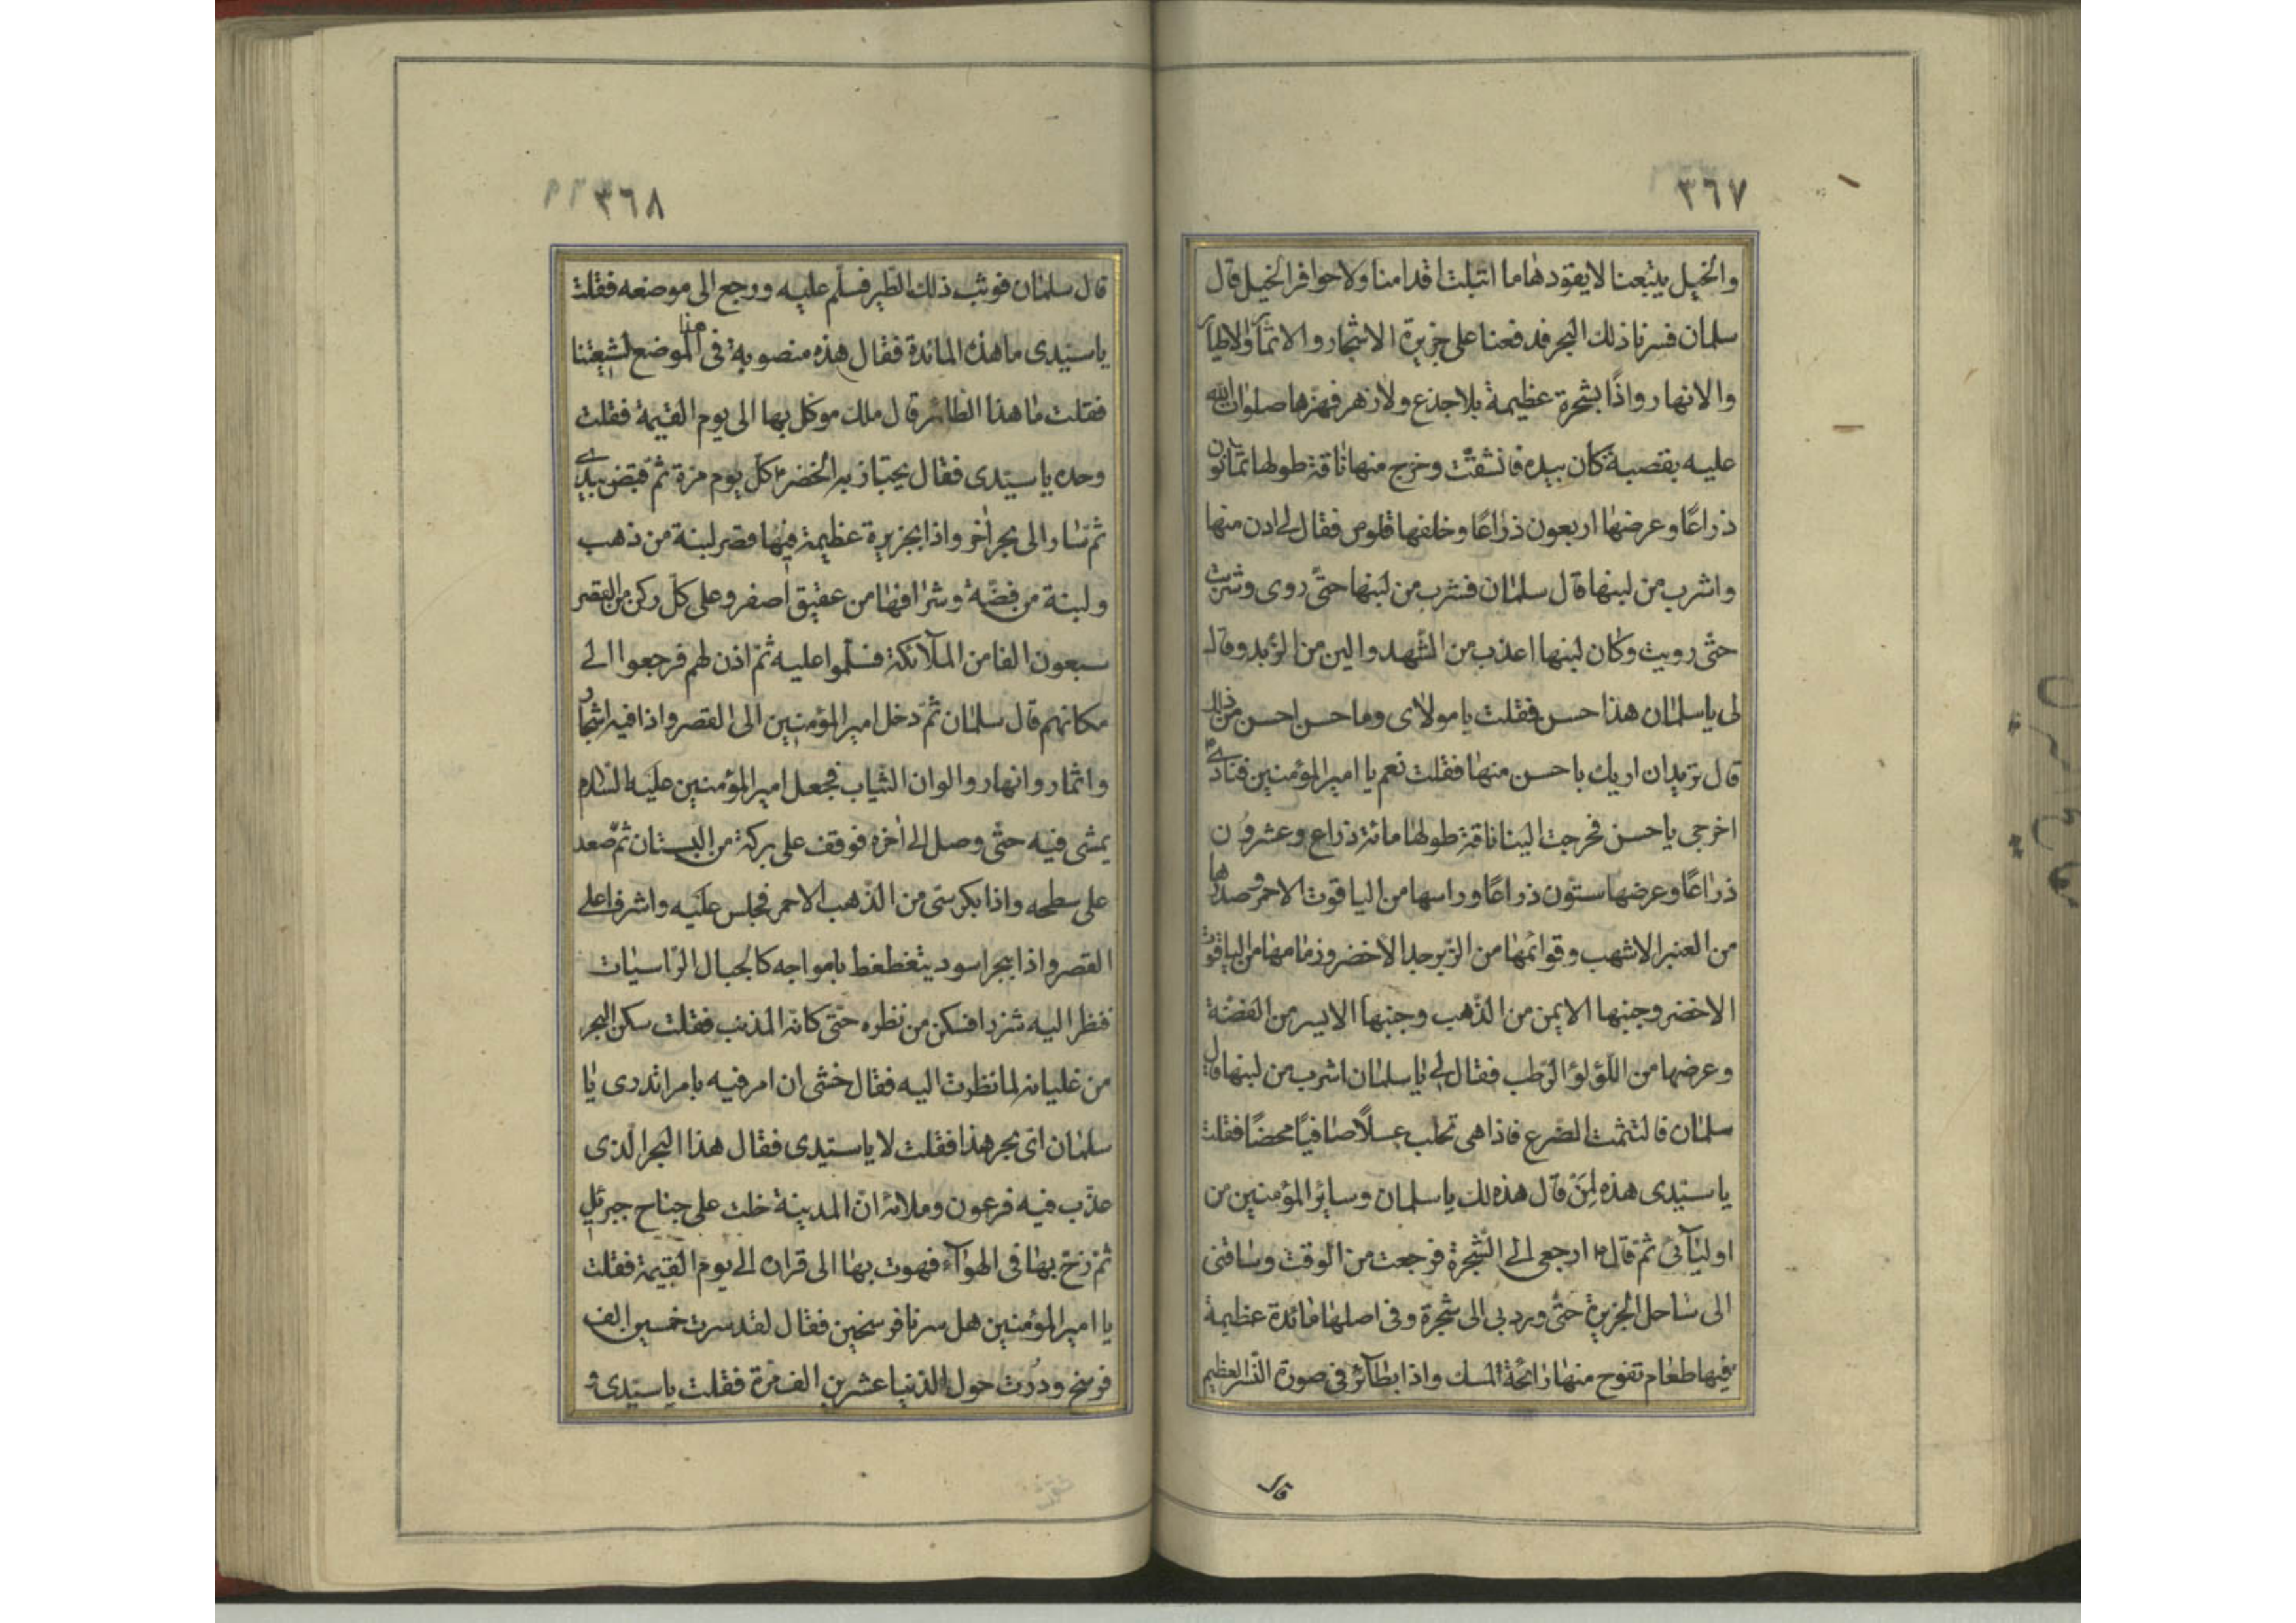 ٣٦٧
والخيل يتبعنا لا يقودها ما ابتلت اقدامنا ولا حوافر الخيل قال
سلمان فسرنا ذلك البحر فدفعنا على جزيرة الاشجار والاثمار والاطيار
والانهار واذًا بشجرة عظيمة بلا جذع ولا زهر فهزّها صلوات الله
عليه بقصبة كان بيده فانشقّت وخرج منها ناقة طولها ثمانون
ذراعًا وعرضها اربعون ذراعًا وخلفها قلوص فقال لى ادن منها
واشرب من لبنها قال سلمان فشرب من لبنها حتّى روى وشربت
حتّى رويت وكان لبنها اعذب من الشّهد والين من الزّبد وقال
لى يا سلمان هذا حسن فقلت يا مولاى وما حسن احسن من ذلك
قال تريد ان اريك باحسن منها فقلت نعم يا امير المؤمنين فنادى
اخرجى يا حسن فخرجت الينا ناقة طولها مائة ذراع وعشرون
ذراعًا وعرضها ستّون ذراعًا وراسها من الياقوت الاحمر وصدرها
من العنبر الاشهب وقوائمها من الزّبرجد الاخضر وزمامها من الياقوت
الاخضر وجنبها الايمن من الذّهب وجنبها الايسر من الفضّة
وعرضها من اللّؤلؤ الرّطب فقال لى يا سلمان اشرب من لبنها قال
سلمان فالتثمت الضّرع فاذا هى تحلب عسلًا صافيًا محضًا فقلت
يا سيّدى هذه لمن قال هذه لك يا سلمان وسائر المؤمنين من
اوليآئى ثمّ قال ارجعى الى الشّجرة فرجعت من الوقت وساقنى
الى ساحل الجزيرة حتّى ورد بى الى شجرة وفى اصلها مائدة عظيمة
فيها طعام تفوح منها رائحة المسك واذا بطآئر فى صورة النّسر العظيم
قال
٣٦٨
قال سلمان فوثب ذلك الطّير فسلّم عليه ورجع الى موضعه فقلت
يا سيّدى ما هذه المائدة فقال هذه منصوبة فى هذا الموضع لشيعتنا
فقلت ما هذا الطائر قال ملك موكل بها الى يوم القيمة فقلت
وحده يا سيّدى فقال يجتاز به الخضر كلّ يوم مرّة ثمّ قبض بيدى
ثمّ سار الى بحر اخر واذا بجزيرة عظيمة فيها قصر لبنة من ذهب
ولبنة من فضّة وشرافها من عقيق اصفر وعلى كلّ ركن من القصر
سبعون الفا من الملآئكة فسلّموا عليه ثمّ اذن لهم فرجعوا الى
مكانهم قال سلمان ثمّ دخل امير المؤمنين الى القصر واذا فيه اشجار
واثمار وانهار والوان الثياب فجعل امير المؤمنين عليه السّلام
يمشى فيه حتّى وصل الى اخره فوقف على بركة من البستان ثمّ صعد
على سطحه واذا بكرسّى من الذّهب الاحمر فجلس عليه واشرفا على
القصر واذا ببحر اسود يتغطغط بامواجه كالجبال الرّاسيات
فنظر اليه شزرا فسكن من نظره حتّى كانه المذنب فقلت سكن البحر
من غليانه لما نظرت اليه فقال خشى ان امر فيه بامر اتدرى يا
سلمان اىّ بحر هذا فقلت لا يا سيّدى فقال هذا البحر الّذى
عذّب فيه فرعون وملائه انّ المدينة خلت على جناح جبرئيل
ثمّ زخّ بها فى الهوآء فهوت بها الى قراره الى يوم القيمة فقلت
يا امير المؤمنين هل سرنا فرسخين فقال لقد سرت خمسين الف
فرسخ ودُرت حول الدّنيا عشرين الف مرّة فقلت يا سيّدى و